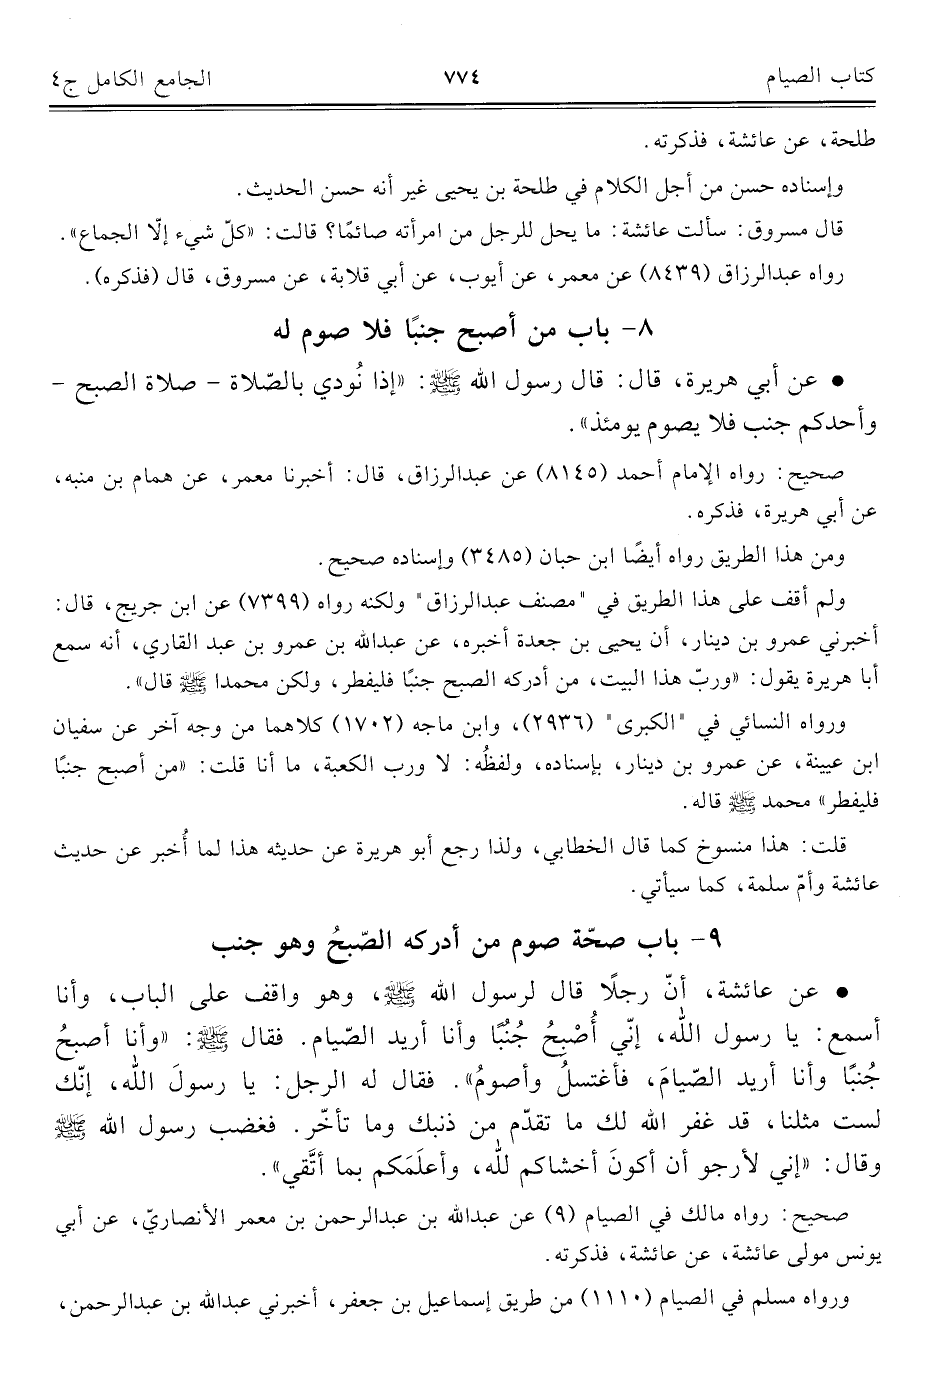 كتاب الصيام ٧٧٤ الجامع الكامل ج٤
طلحة، عن عائشة، فذكرته.
وإسناده حسن من أجل الكلام في طلحة بن يحيى غير أنه حسن الحديث.
قال مسروق: سألت عائشة: ما يحل للرجل من امرأته صائمًا؟ قالت: «كلّ شيء إلّا الجماع».
رواه عبدالرزاق (٨٤٣٩) عن معمر، عن أيوب، عن أبي قلابة، عن مسروق، قال (فذكره).
٨- باب من أصبح جنبًا فلا صوم له
● عن أبي هريرة، قال: قال رسول الله ﷺ: «إذا نُودي بالصّلاة - صلاة الصبح -
وأحدكم جنب فلا يصوم يومئذ».
صحيح: رواه الإمام أحمد (٨١٤٥) عن عبدالرزاق، قال: أخبرنا معمر، عن همام بن منبه،
عن أبي هريرة، فذكره.
ومن هذا الطريق رواه أيضًا ابن حبان (٣٤٨٥) وإسناده صحيح.
ولم أقف على هذا الطريق في "مصنف عبدالرزاق" ولكنه رواه (٧٣٩٩) عن ابن جريج، قال:
أخبرني عمرو بن دينار، أن يحيى بن جعدة أخبره، عن عبدالله بن عمرو بن عبد القاري، أنه سمع
أبا هريرة يقول: «وربّ هذا البيت، من أدركه الصبح جنبًا فليفطر، ولكن محمدا ﷺ قال».
ورواه النسائي في "الكبرى" (٢٩٣٦)، وابن ماجه (١٧٠٢) كلاهما من وجه آخر عن سفيان
ابن عيينة، عن عمرو بن دينار، بإسناده، ولفظُه: لا ورب الكعبة، ما أنا قلت: «من أصبح جنبًا
فليفطر» محمد ﷺ قاله.
قلت: هذا منسوخ كما قال الخطابي، ولذا رجع أبو هريرة عن حديثه هذا لما أُخبر عن حديث
عائشة وأمّ سلمة، كما سيأتي.
٩- باب صحّة صوم من أدركه الصّبحُ وهو جنب
● عن عائشة، أنّ رجلًا قال لرسول الله ﷺ، وهو واقف على الباب، وأنا
أسمع: يا رسول الله، إنّي أُصْبِحُ جُنُبًا وأنا أريد الصّيام. فقال ﷺ: «وأنا أصبحُ
جُنبًا وأنا أريد الصّيامَ، فأغتسلُ وأصومُ». فقال له الرجل: يا رسولَ الله، إنّك
لست مثلنا، قد غفر الله لك ما تقدّم من ذنبك وما تأخّر. فغضب رسول الله ﷺ
وقال: «إني لأرجو أن أكونَ أخشاكم لله، وأعلَمَكم بما أتَّقي».
صحيح: رواه مالك في الصيام (٩) عن عبدالله بن عبدالرحمن بن معمر الأنصاريّ، عن أبي
يونس مولى عائشة، عن عائشة، فذكرته.
ورواه مسلم في الصيام (١١١٠) من طريق إسماعيل بن جعفر، أخبرني عبدالله بن عبدالرحمن،